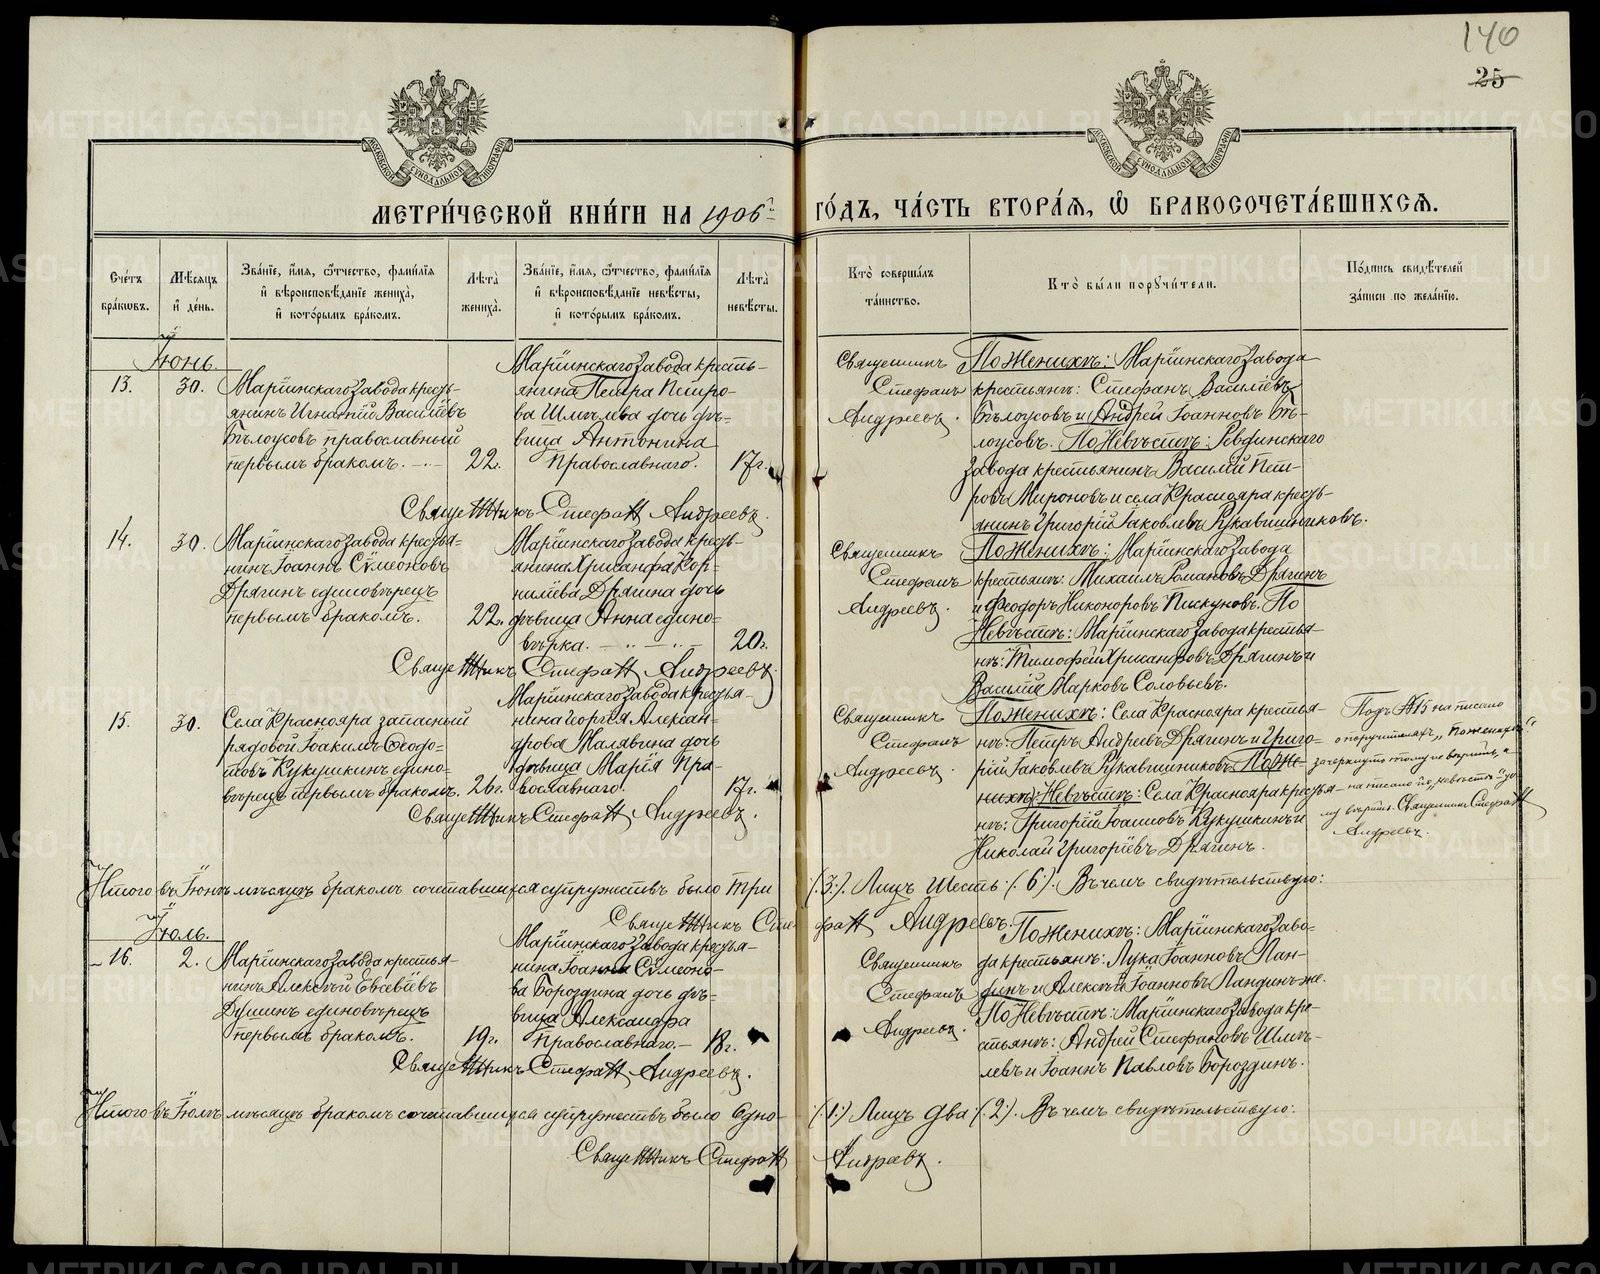 140
25
МОСКОВСКОЙ СУНОДАЛЬНОЙ ТИПОГРАФІИ
МОСКОВСКОЙ СУНОДАЛЬНОЙ ТИПОГРАФІИ
МЕТРИ́ЧЕСКОЙ КНИ́ГИ НА 1906й
ГО́ДЪ, ЧА́СТЬ ВТОРА́Я, Ѡ҆ БРАКОСОЧЕТА́ВШИХСЯ.
Сче́тъ бра́кѡвъ.
Мѣ́сяцъ и҆ де́нь.
Зва́нїе, и҆́мя, ѻ҆́тчество, фамѝлїя
и҆ вѣроисповѣ́данїе жениха̀,
и҆ кото́рымъ бра́комъ.
Лѣта̀ жениха̀.
Зва́нїе, и҆́мя, ѻ҆́тчество, фамѝлїя
и҆ вѣроисповѣ́данїе невѣ́сты,
и҆ кото́рымъ бра́комъ.
Лѣта̀ невѣ́сты.
Кто̀ соверша́лъ та́инство.
Кто̀ бы́ли порꙋчи́тели.
По́дпись свидѣ́телей за́писи по жела́нїю.
Іюнь.
13.
30.
Маріинскаго завода кресть-
янинъ Игнатій Василіевъ
Бѣлоусовъ православный
первымъ бракомъ.
22.
Маріинскаго завода кресть-
янина Петра Петро-
ва Шмелева дочь дѣ-
вица Антонина
Православнаго.
17г.
Священникъ
Стефанъ
Андреевъ.
По Женихѣ: Маріинскаго завода
крестьянѣ: Стефанъ Василіевъ
Бѣлоусовъ и Андрей Іоанновъ Бѣ-
лоусовъ. По Невѣстѣ: Ревдинскаго
завода крестьянинъ Василій Пет-
ровъ Мироновъ и села Краснояра кресть-
янинъ Григорій Іаковлевъ Рукавишниковъ.
Священникъ Стефанъ Андреевъ.
14.
30.
Маріинскаго завода крестья-
нинъ Іоаннъ Сѵмеоновъ
Дрягинъ единовѣрецъ
первымъ бракомъ.
22.
Маріинскаго завода кресть-
янина Хрисанфа Кор-
нилїева Дрягина дочь
дѣвица Анна едино-
вѣрка.
20г.
Священникъ
Стефанъ
Андреевъ.
По Женихѣ: Маріинскаго завода
крестьянѣ: Михаилъ Романовъ Дрягинъ
и Феодоръ Никоноровъ Пискуновъ. По
Невѣстѣ: Маріинскаго завода крестья-
нѣ: Тимофей Хрисанфовъ Дрягинъ и
Василій Марковъ Соловьевъ.
Священникъ Стефанъ Андреевъ.
15.
30.
Села Краснояра запасный
рядовой Іоакимъ Ѳеодо-
товъ Кукушкинъ едино-
вѣрецъ первымъ бракомъ.
26г.
Маріинскаго завода крестья-
нина Георгїя Алексан-
дрова Малявина дочь
дѣвица Марїя Пра-
вославнаго.
17г.
Священникъ
Стефанъ
Андреевъ.
По Женихѣ: Села Краснояра крестья-
нѣ: Петръ Андреевъ Дрягинъ и Григо-
рій Іаковлевъ Рукавишниковъ. По Же-
нихѣ: Невѣстѣ: Села Краснояра крестья-
нѣ: Григорій Іоанновъ Кукушкинъ и
Николай Григоріевъ Дрягинъ.
Подъ №15 написано
о поручителяхъ „По женихѣ:"
зачеркнуто тому не вѣрить, а
написано по „невѣстѣ" то-
му вѣрить. Священникъ Стефанъ
Андреевъ.
Священникъ Стефанъ Андреевъ.
Итого въ Іюнѣ мѣсяцѣ бракомъ сочетавшихся супружествъ было три (:3:). Лицъ Шесть (:6:). Въ чемъ свидѣтельствую:
Священникъ Стефанъ Андреевъ.
Іюль.
16.
2.
Маріинскаго завода крестья-
нинъ Алексѣй Евсевїевъ
Душинъ единовѣрецъ
первымъ бракомъ.
19г.
Маріинскаго завода крестья-
нина Іоанна Сѵмеоно-
ва Бороздина дочь дѣ-
вица Александра
Православнаго.
18г.
Священникъ
Стефанъ
Андреевъ.
По Женихѣ: Маріинскаго заво-
да крестьянѣ: Лука Іоанновъ Лан-
динъ и Алексѣй Іоанновъ Ландинъ же.
По Невѣстѣ: Маріинскаго завода кре-
стьянѣ: Андрей Стефановъ Шме-
левъ и Іоаннъ Павловъ Бороздинъ.
Священникъ Стефанъ Андреевъ.
Итого въ Іюлѣ мѣсяцѣ бракомъ сочетавшихся супружествъ было Одно (:1:) Лицъ Два (:2:). Въ чемъ свидѣтельствую:
Священникъ Стефанъ Андреевъ.
METRIKI.GASO-URAL.RU